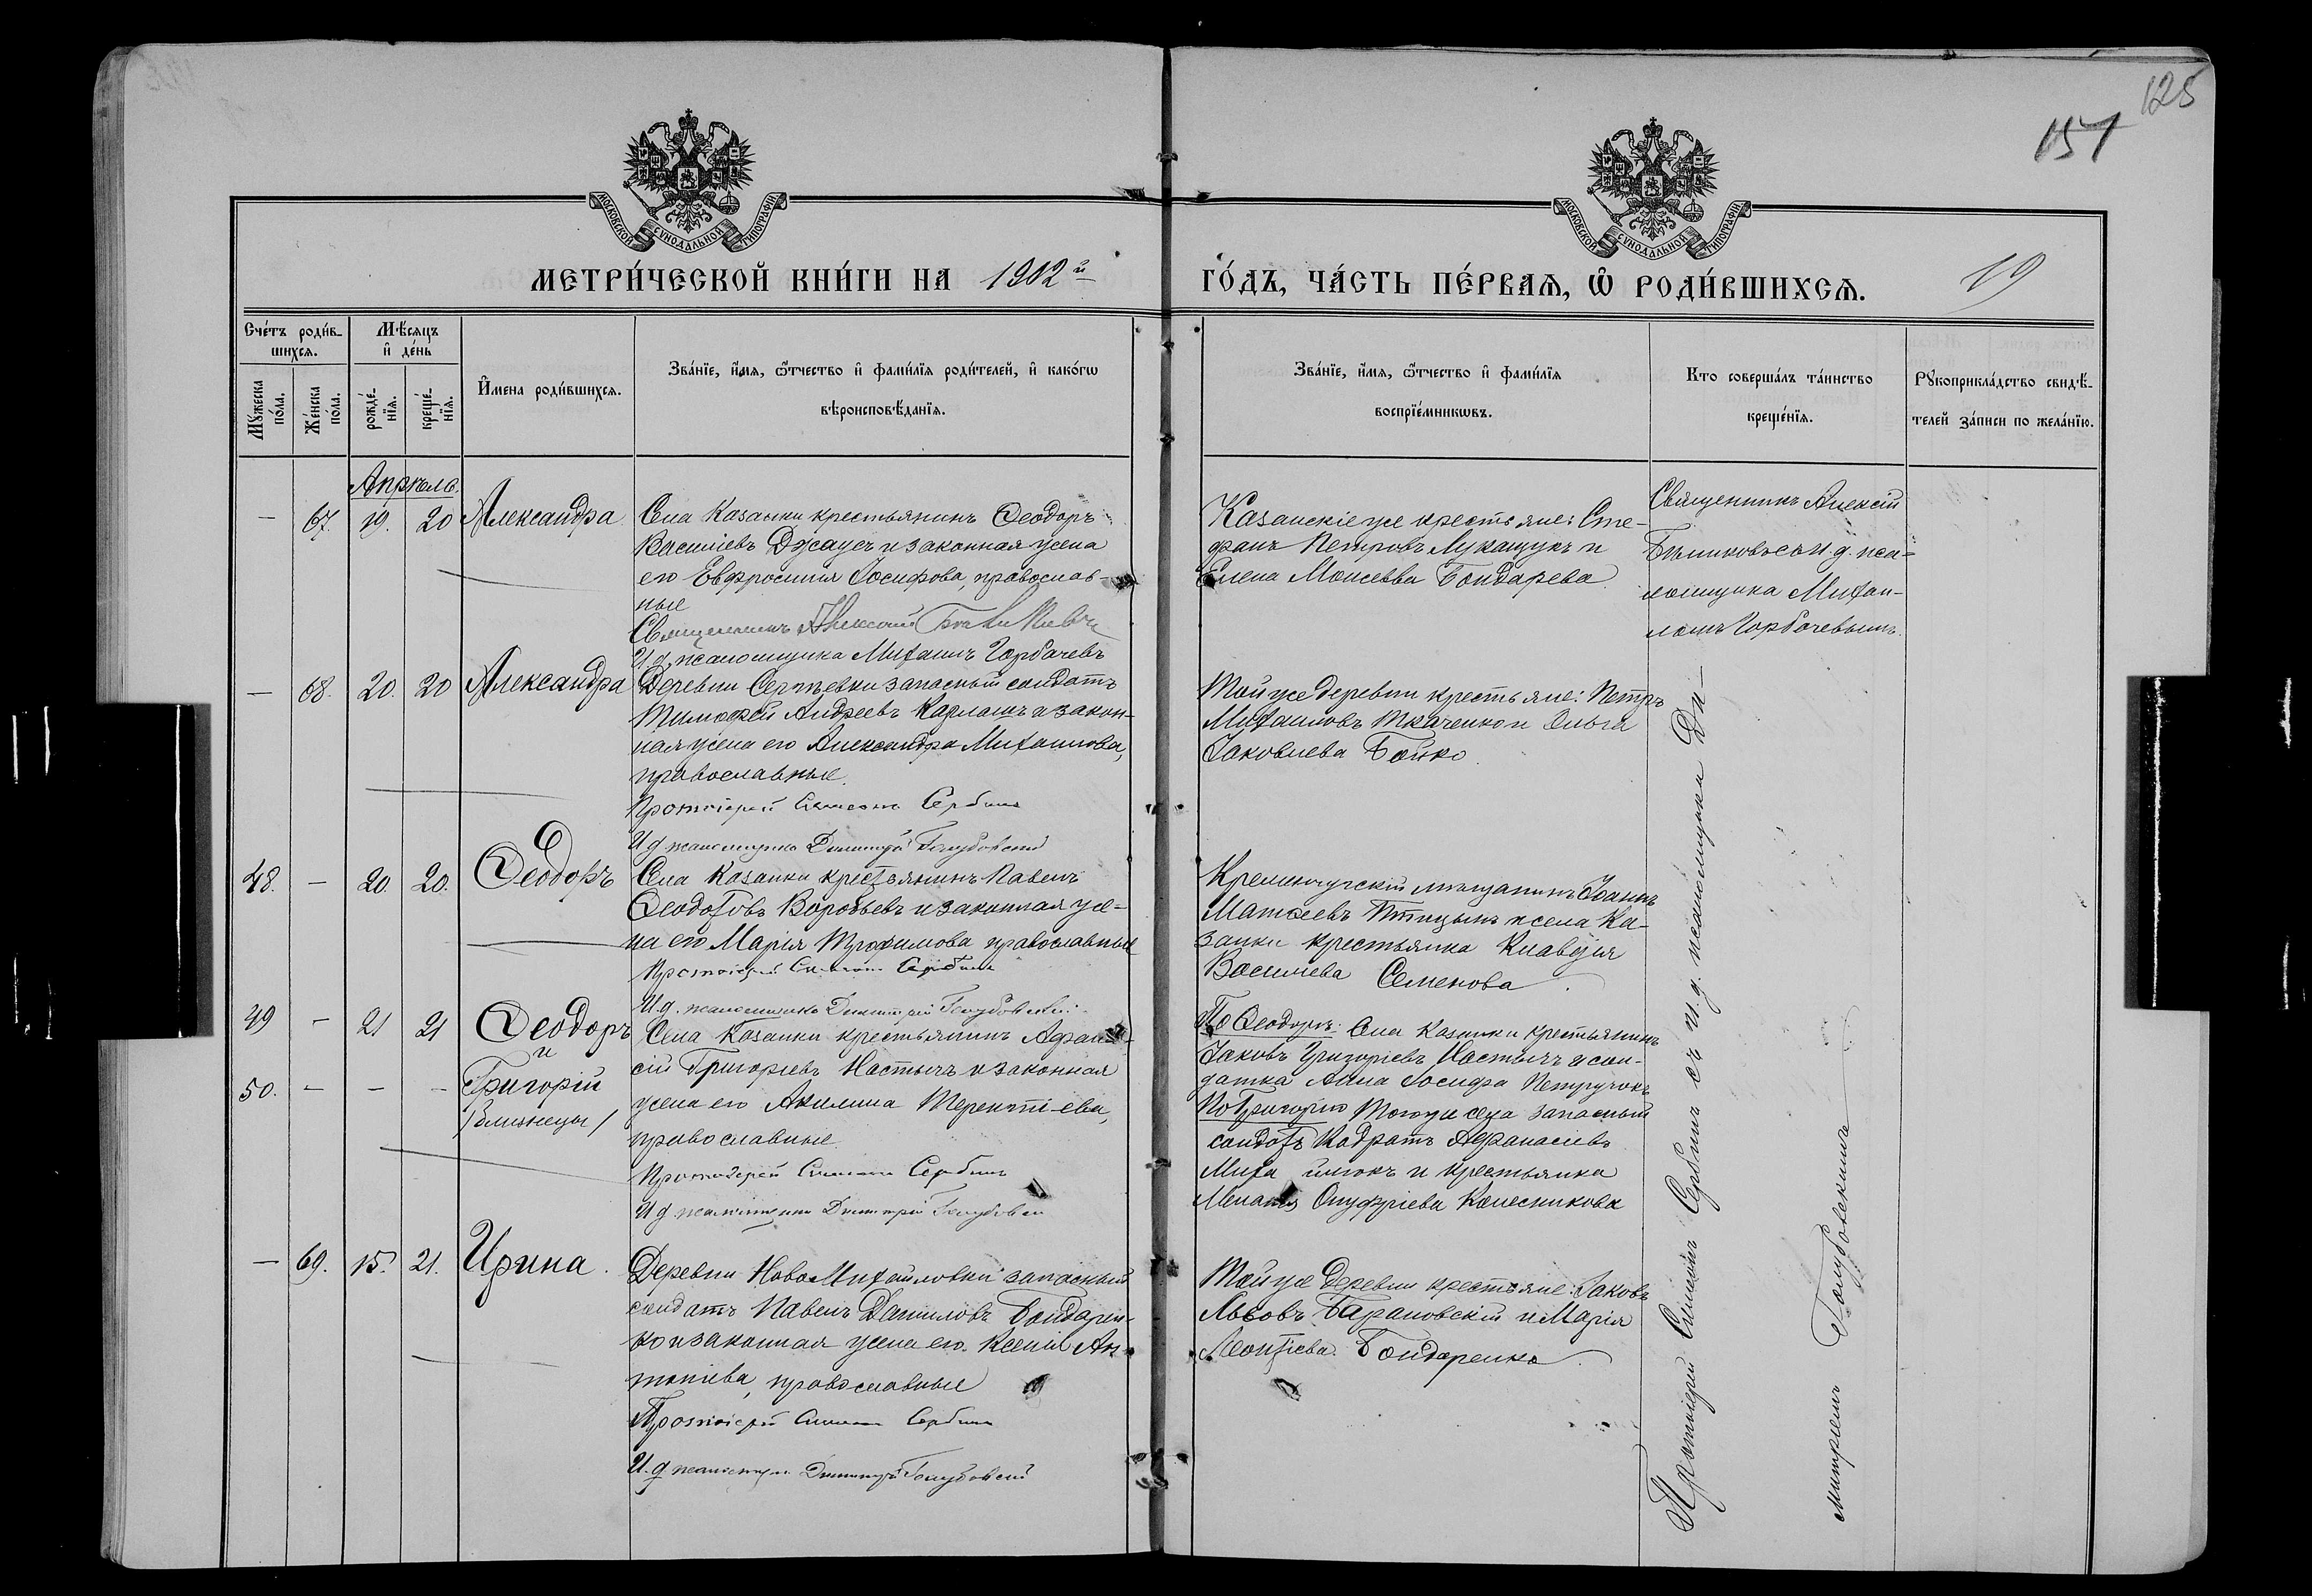 125
151
МОСКОВСКОЙ СѴНОДАЛЬНОЙ ТИПОГРАФІИ
МОСКОВСКОЙ СѴНОДАЛЬНОЙ ТИПОГРАФІИ
МЕТРИ́ЧЕСКОЙ КНИ́ГИ НА 1902й
ГО́ДЪ, ЧА́СТЬ ПЕ́РВАѦ, Ѡ҆ РОДИ́ВШИХСѦ.
19
Сче́тъ роди́в-
шихсѧ.
Мѣ́сѧцъ
и҆ де́нь
Мꙋ́жеска
по́ла.
Же́нска
по́ла.
рожде́-
нїѧ.
креще́-
нїѧ.
И҆мена роди́вшихсѧ.
Зва́нїе, и҆́мѧ, ѻ҆́тчество и҆ фами́лїѧ роди́телей, и҆ како́гѡ
вѣроисповѣ́данїѧ.
Зва́нїе, и҆́мѧ, ѻ҆́тчество и҆ фами́лїѧ
воспрїе́мникѡвъ.
Кто соверша́лъ та́инство
креще́нїѧ.
Рꙋкоприкла́дство свидѣ́-
телей за́писи по жела́нїю.
Апрѣль.
— 67. 19. 20 Александра
Села Казанки крестьянинъ Ѳеодоръ
Василіевъ Джаус и законная жена
его Евфросинія Іосифова, православ-
ные
Священникъ Алексій
И. д. псаломщика Михаилъ Горбачевъ
Казанскіе же крестьяне: Сте-
фанъ Петровъ Лукащукъ и
Елена Моисеева Бондарева.
Священникъ Алексій
съ И. д. пса-
ломщика Михаи-
ломъ Горбачевымъ.
— 68. 20. 20 Александра
Деревни Сергѣевки запасный солдатъ
Тимофей Андреевъ Карлашъ и закон-
ная жена его Александра Михаилова,
православные.
Протоіерей Симеонъ Сербинъ
И д псаломщика Димитрій Голубовскій
Той же деревни крестьяне: Петръ
Михаиловъ Ткаченко и Ольга
Іаковлева Бойко.
48. — 20. 20. Ѳеодоръ
Села Казанки крестьянинъ Павелъ
Ѳеодотовъ Воробьевъ и законная же-
на его Марія Трофимова православные
Протоіерей Симеонъ Сербинъ
И. д. псаломщика Димитрій Голубовскій
Кременчугскій мѣщанинъ Іоаннъ
Матѳеевъ Птицынъ и села Ка-
занки крестьянка Клавдія
Василіева Семенова.
49 — 21 21 Ѳеодоръ
и
50. — — — Григорій
/близнецы/
Села Казанки крестьянинъ Афана-
сій Григоріевъ Настычъ и законная
жена его Акилина Терентіева,
православные
Протоіерей Симеонъ Сербинъ
И д псаломщика Димитрій Голубовскій
По Ѳеодоръ: Села Казанки крестьянинъ
Іаковъ Григоріевъ Настычъ и сол-
датка Анна Іосифа Петручокъ
По Григорію Того же села запасный
солдатъ Кодратъ Афанасіевъ
и крестьянка
Меланія Онуфріева Колесникова
— 69. 15. 21. Ирина.
Деревни НовоМихайловки запасный
солдатъ Павелъ Даниловъ Бондарен-
ко и законная жена его Ксенія Ан-
тоніева, православные
Протоіерей Симеонъ Сербинъ
И. д псаломщика Димитрій Голубовскій
Той же деревни крестьяне: Іаковъ
Львовъ Барановскій и Марія
Леонтіева Бондаренко.
Протоіерей Симеонъ Сербинъ съ И. д. псаломщика Ди-
митріемъ Голубовскимъ